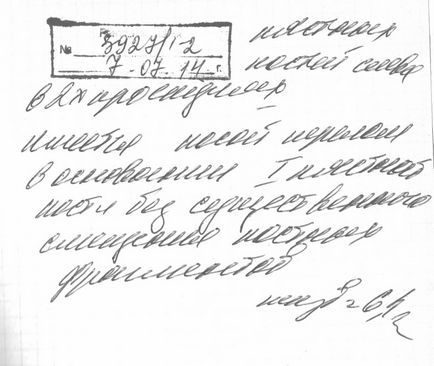 № 3927/1-2 пястных
7-07 14 г. костей слева
в 2х проекциях
Имеется косой перелом
в основании I пястной
кости без существенного
смещения костных
фрагментов